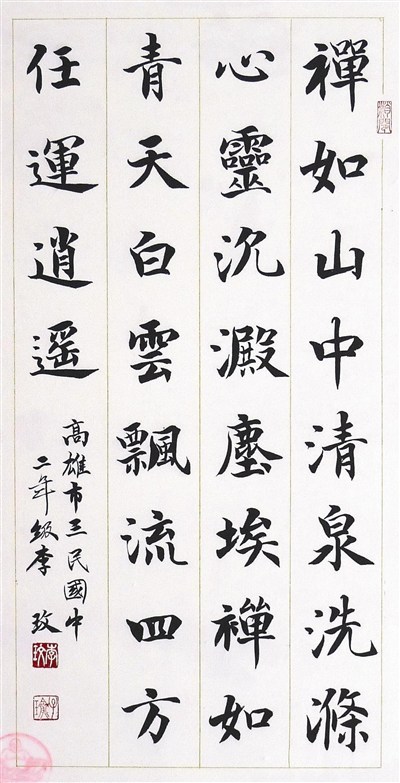 禪如山中清泉洗滌
心靈沉澱塵埃禪如
青天白雲飄流四方
任運逍遙
高雄市三民國中
二年級李玫